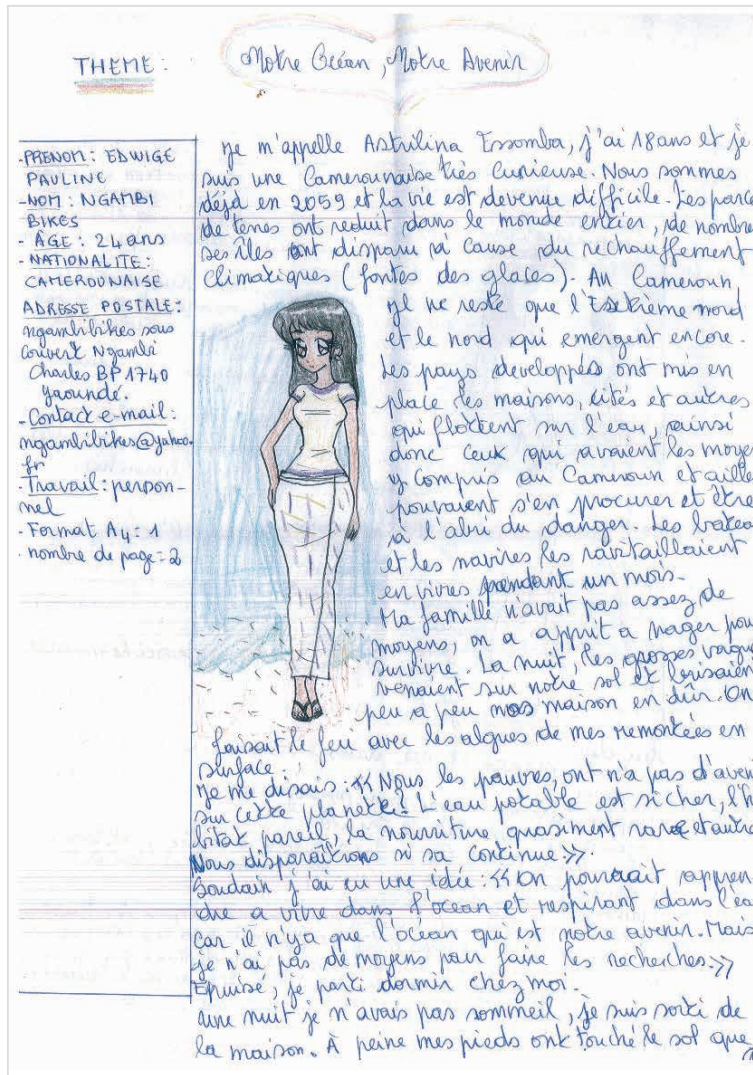 THEME :
Notre Océan, Notre Avenir
- PRENOM : EDWIGE
PAULINE
- NOM : NGAMBI
BIKES
- ÂGE : 24 ans
- NATIONALITE :
CAMEROUNAISE
ADRESSE POSTALE :
ngambibikes sous
couvert Ngambi
Charles BP 1740
Yaoundé.
- Contact e-mail :
ngambibikes@yahoo.
fr
- Travail : person-
nel
- Format A4 : x
- nombre de page = 2
Je m'appelle Astrilina Essomba, j'ai 18 ans et je
suis une Camerounaise très curieuse. Nous sommes
déjà en 2059 et la vie est devenue difficile. Les parce
de terres ont reduit dans le monde entier, de nombre
ses îles ont disparu à cause du rechauffement
climatiques (fontes des glaces). Au Cameroun
il ne reste que l'Extrême nord
et le nord qui emergent encore.
Les pays developpés ont mis en
place des maisons, cités et autres
qui flottent sur l'eau, ainsi
donc ceux qui avaient les moye
y compris au Cameroun et aille
pouvaient s'en procurer et être
à l'abri du danger. Les batea
et les navires les ravitaillaient
en vivres pendant un mois.
Ma famille n'avait pas assez de
moyens, on a apprit a nager pou
survivre. La nuit, les grosses vague
venaient sur notre sol et brisaien
peu a peu nos maison en dûr. On
faisait le feu avec les algues de mes remontées en
surface.
Je me disais : << Nous les pauvres, ont n'a pas d'aveni
sur cette planette? L'eau potable est si cher, l'h
bitat pareil, la nourriture quasiment rare et autre
Nous disparaîtrons si sa continue >>.
Soudain j'ai eu une idée : << On pourrait appren
dre a vivre dans l'océan et respirant dans l'ea
car il n'ya que l'océan qui est notre avenir. Mais
je n'ai pas de moyens pour faire les recherches. >>
Epuisé, je parti dormir chez moi.
Une nuit je n'avais pas sommeil, je suis sorti de
la maison. À peine mes pieds ont touché le sol que